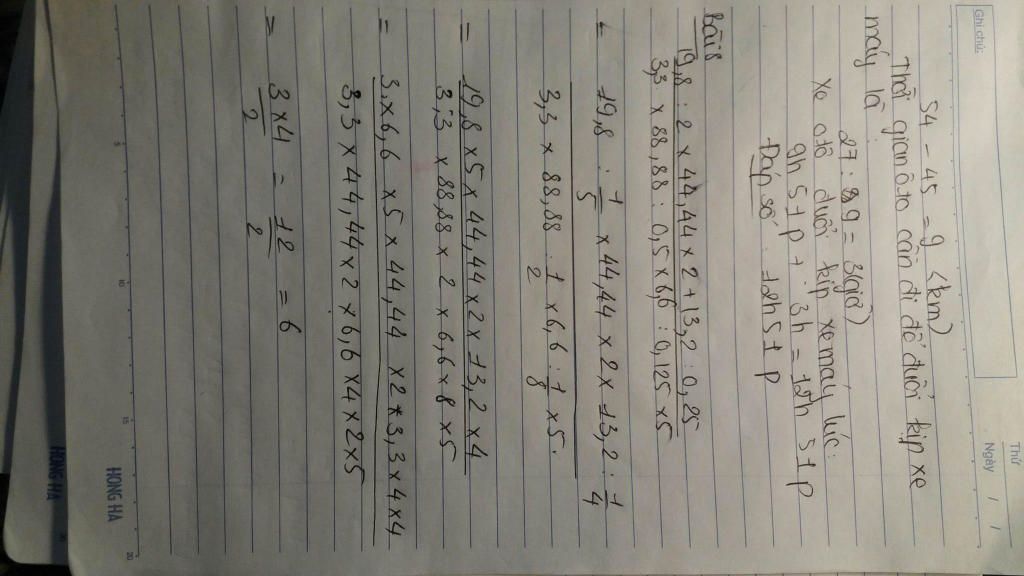 Ghi chú:
Thứ
Ngày / /
54 - 45 = 9 (km)
Thời gian ô to cần đi để đuổi kịp xe
máy là:
27 : 9 = 3(giờ)
Xe ô tô đuổi kịp xe máy lúc:
9h 51p + 3h = 12h 51p
Đáp số: 12h 51p
Bài 5
19,8 : 2 x 44,44 x 2 + 13,2 : 0,25
3,3 x 88,88 : 0,5 x 6,6 : 0,125 x 5
= 19,8 : 1/5 x 44,44 x 2 x 13,2 : 1/4
3,3 x 88,88 : 1/2 x 6,6 : 1/8 x 5.
= 19,8 x 5 x 44,44 x 2 x 13,2 x 4
3,3 x 88,88 x 2 x 6,6 x 8 x 5
= 3 x 6,6 x 5 x 44,44 x 2 x 3,3 x 4 x 4
3,3 x 44,44 x 2 x 6,6 x 4 x 2 x 5
= 3 x 4 / 2 = 12 / 2 = 6
5 10 15 20
HONG HA
HONG HA